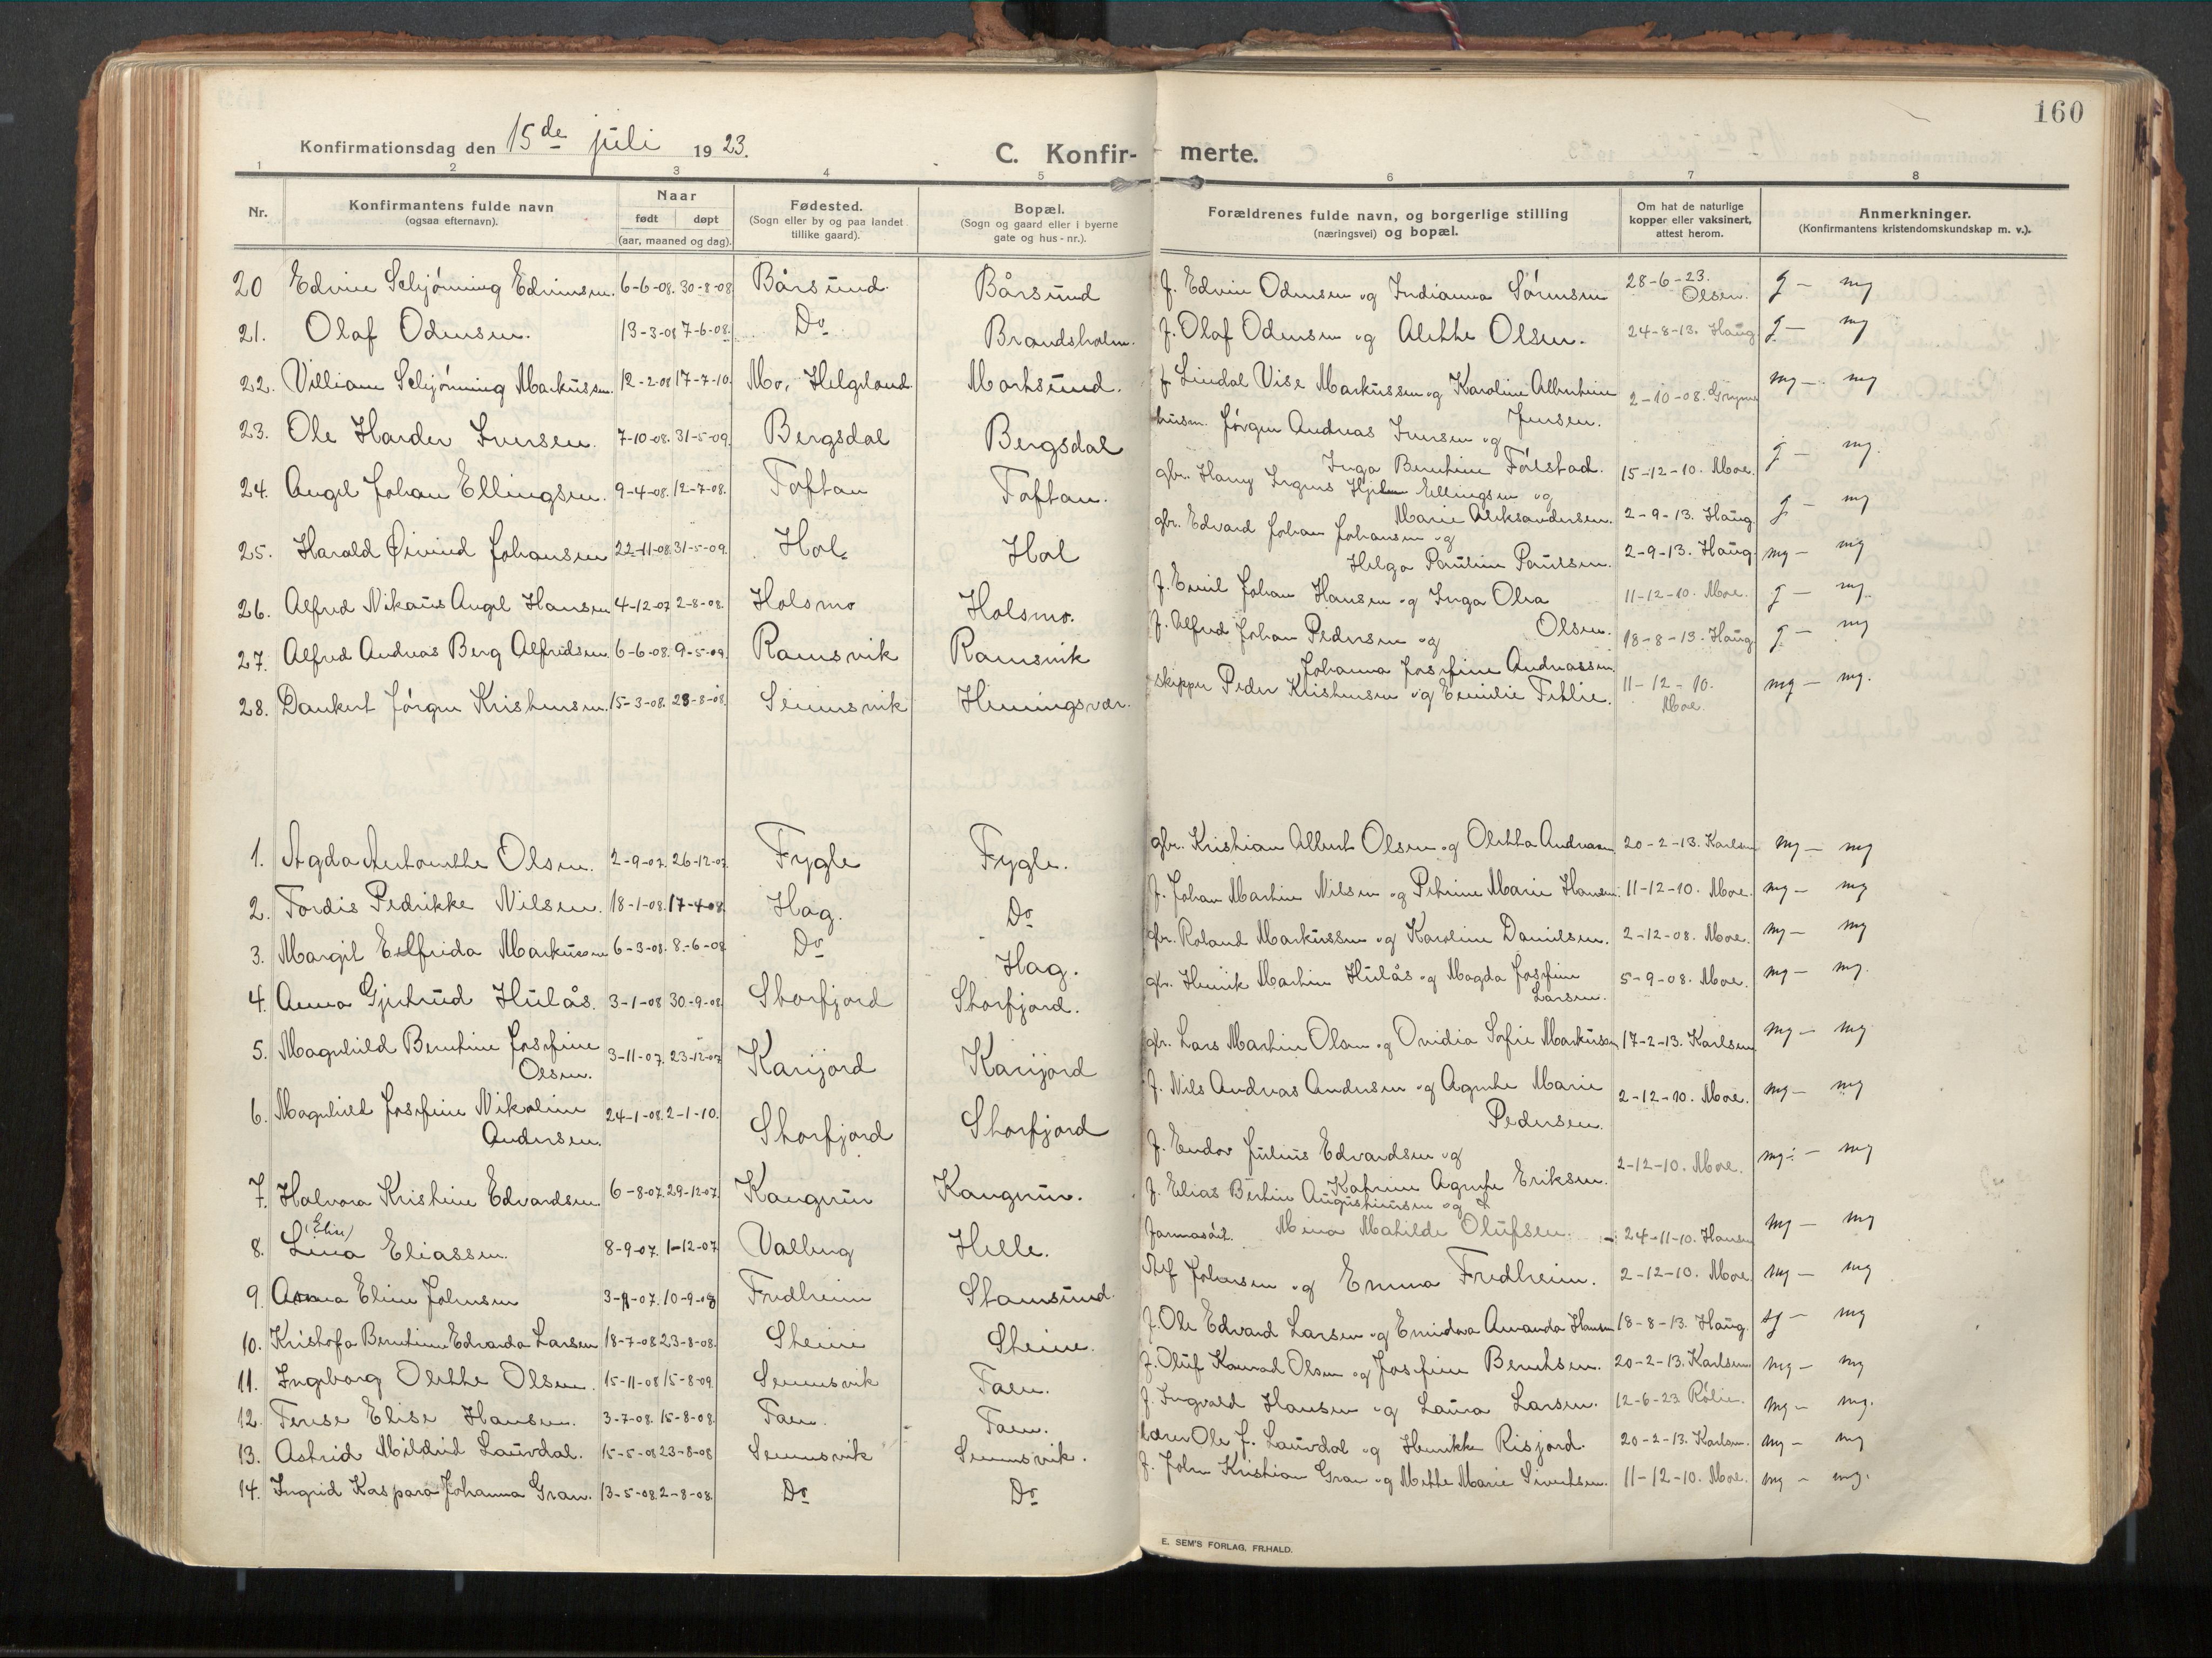 160
Konfirmationsdag den 15de juli 1923.
C. Konfir- merte.
1 2 3 4 5 6 7 8
Nr. Konfirmantens fulde navn (ogsaa efternavn). Naar født døpt (aar, maaned og dag). Fødested. (Sogn eller by og paa landet tillike gaard). Bopæl. (Sogn og gaard eller i byerne gate og hus-nr.). Forældrenes fulde navn, og borgerlige stilling (næringsvei) og bopæl. Om hat de naturlige kopper eller vaksinert, attest herom. Anmerkninger. (Konfirmantens kristendomskundskap m. v.).
20 Edvin Schjönning Edvinsen. 6-6-08. 30-8-08 Bårsund. Bårsund f. Edvin Odinsen og Indianna Sörensen 28-6-23. Olsen. g - mg
21. Olaf Odinsen. 13-3-08 7-6-08. Do Brandsholm. f. Olaf Odinsen og Alette Olsen. 24-8-13. Haug g - mg
22. Villiam Schjönning Markussen. 12-2-08 17-7-10. Mo, Helgeland. Mortsund. f. Lindal Vise Markussen og Karoline Albertine Jensen. 2-10-08. mg - mg
23. Ole Harder Iversen. 7-10-08. 31-5-09. Bergsdal Bergsdal husm. Jörgen Andreas Iversen og Inga Berntine Fölstad. 15-12-10. Moe. g - mg.
24. Angel Johan Ellingsen. 9-4-08. 12-7-08. Toftan Toftan. gbr. Harry Ingens Ellingsen og Marie Aleksandersen. 2-9-13. Haug. g - mg
25. Harald Øivind Johansen 22-11-08. 31-5-09. Hol. Hol gbr. Edvard Johan Johansen og Helga Pauline Paulsen. 2-9-13. Haug. mg - mg
26. Alfred Nikaus Angel Hansen 4-12-07 2-8-08. Holsmo Holsmo. f. Emil Johan Hansen og Inga Olea Olsen. 11-12-10. Moe. g - mg.
27. Alfred Andreas Berg Alfredsen. 6-6-08. 9-5-09. Ramsvik Ramsvik f. Alfred Johan Pedersen og Johanna Josefine Andreassen 18-8-13. Haug g - mg
28. Dankert Jörgen Kristensen. 15-3-08. 23-8-08. Sennsvik Henningsvær. skipper Peder Kristensen og Emilie Fehlie. 11-12-10. Moe. mg - mg.
1. Agda Antonette Olsen. 2-9-07. 26-12-07. Fygle Fygle. gbr. Kristian Albert Olsen og Oletta Andreasen 20-2-13. Karlsen mg - mg
2. Tordis Pedrikke Nilsen. 18-1-08. 17-4-08. Hag. Do f. Johan Martin Nilsen og Petrine Marie Hansen. 11-12-10. Moe. mg - mg
3. Margit Elfrida Markussen 6-3-08. 8-6-08 Do Hag. gbr. Roland Markussen og Karoline Danielsen. 2-12-08. Moe. mg - mg
4. Anna Gjertrud Hulås. 3-1-08 30-9-08 Storfjord Storfjord. gbr. Henrik Martin Hulås og Magda Josefine Larsen. 5-9-08. Moe. mg - mg.
5. Magnhild Berntine Josefine Olsen. 3-11-07. 23-12-07 Karijord Karijord gbr. Lars Martin Olsen og Ovidia Sofie Markussen 17-2-13. Karlsen mg - mg
6. Magnhild Josefine Nikoline Andersen. 24-1-08. 2-1-10. Storfjord Storfjord f. Nils Andreas Andersen og Agnete Marie Pedersen. 2-12-10. Moe. mg - mg
7. Halvora Kristine Edvardsen. 6-8-07. 29-12-07. Kangerur Kangerur. f. Endor Julius Edvardsen og Katrine Agnete Eriksen. 2-12-10. Moe. mg - mg
8. Lina (Elise) Eliassen. 8-9-07. 1-12-07 Valberg Helle. f. Elias Bertin Augustinussen og Mina Matilde Olufsen. 24-11-10. Hansen mg - mg
9. Anna Eline Johnsen 3-9-07. 10-9-08 Fredheim Stamsund. Alf Johnsen og Emma Fredheim. 2-12-10. Moe. mg - mg
10. Kristofa Berntine Edvarda Larsen 18-7-08 23-8-08. Steine Steine. f. Ole Edvard Larsen og Amanda Hansen 18-8-13. Haug. sg - mg
11. Ingeborg Olette Olsen. 15-11-08 15-8-09. Sennsvik Taen. f. Oluf Konrad Olsen og Josefine Berntsen. 20-2-13. Karlsen. mg - mg
12. Terese Elise Hansen. 3-7-08. 15-8-08. Taen. Taen. f. Ingvald Hansen og Laura Larsen. 12-6-23. Rölie. mg - mg.
13. Astrid Mildrid Lauvdal. 15-5-08 23-8-08 Sennsvik Sennsvik. lærer Ole J. Lauvdal og Henrikke Risjord. 20-2-13. Karlsen. mg - mg
14. Ingrid Kaspara Johanna Gran. 13-5-08. 2-8-08. Do Do f. John Kristian Gran og Mette Marie Sivertsen. 11-12-10. Moe. mg - mg.
E. SEM'S FORLAG, FR.HALD.